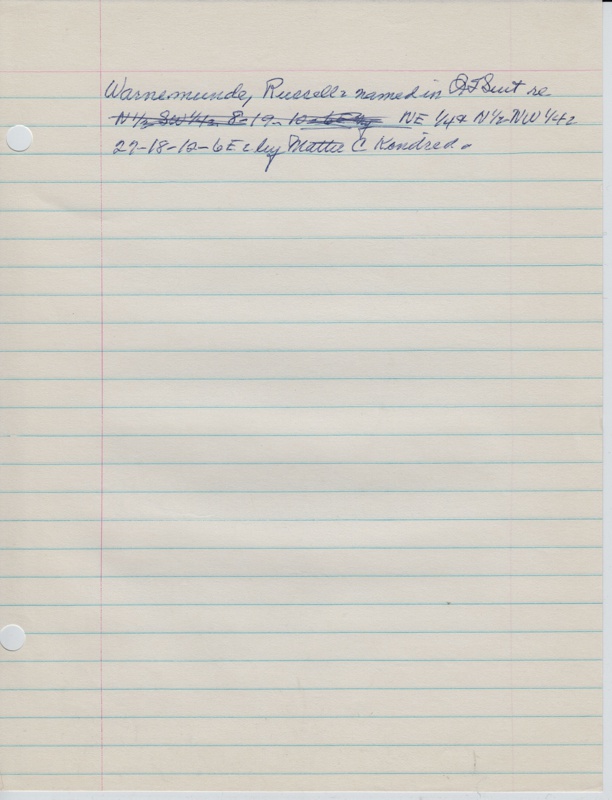 Warnemunde, Russell- named in QT Suit re
N 1/2 SW 1/4- 8-19-10 NE 1/4 & N 1/2-NW 1/4-
27-18-12-6 E- by C Kondred.